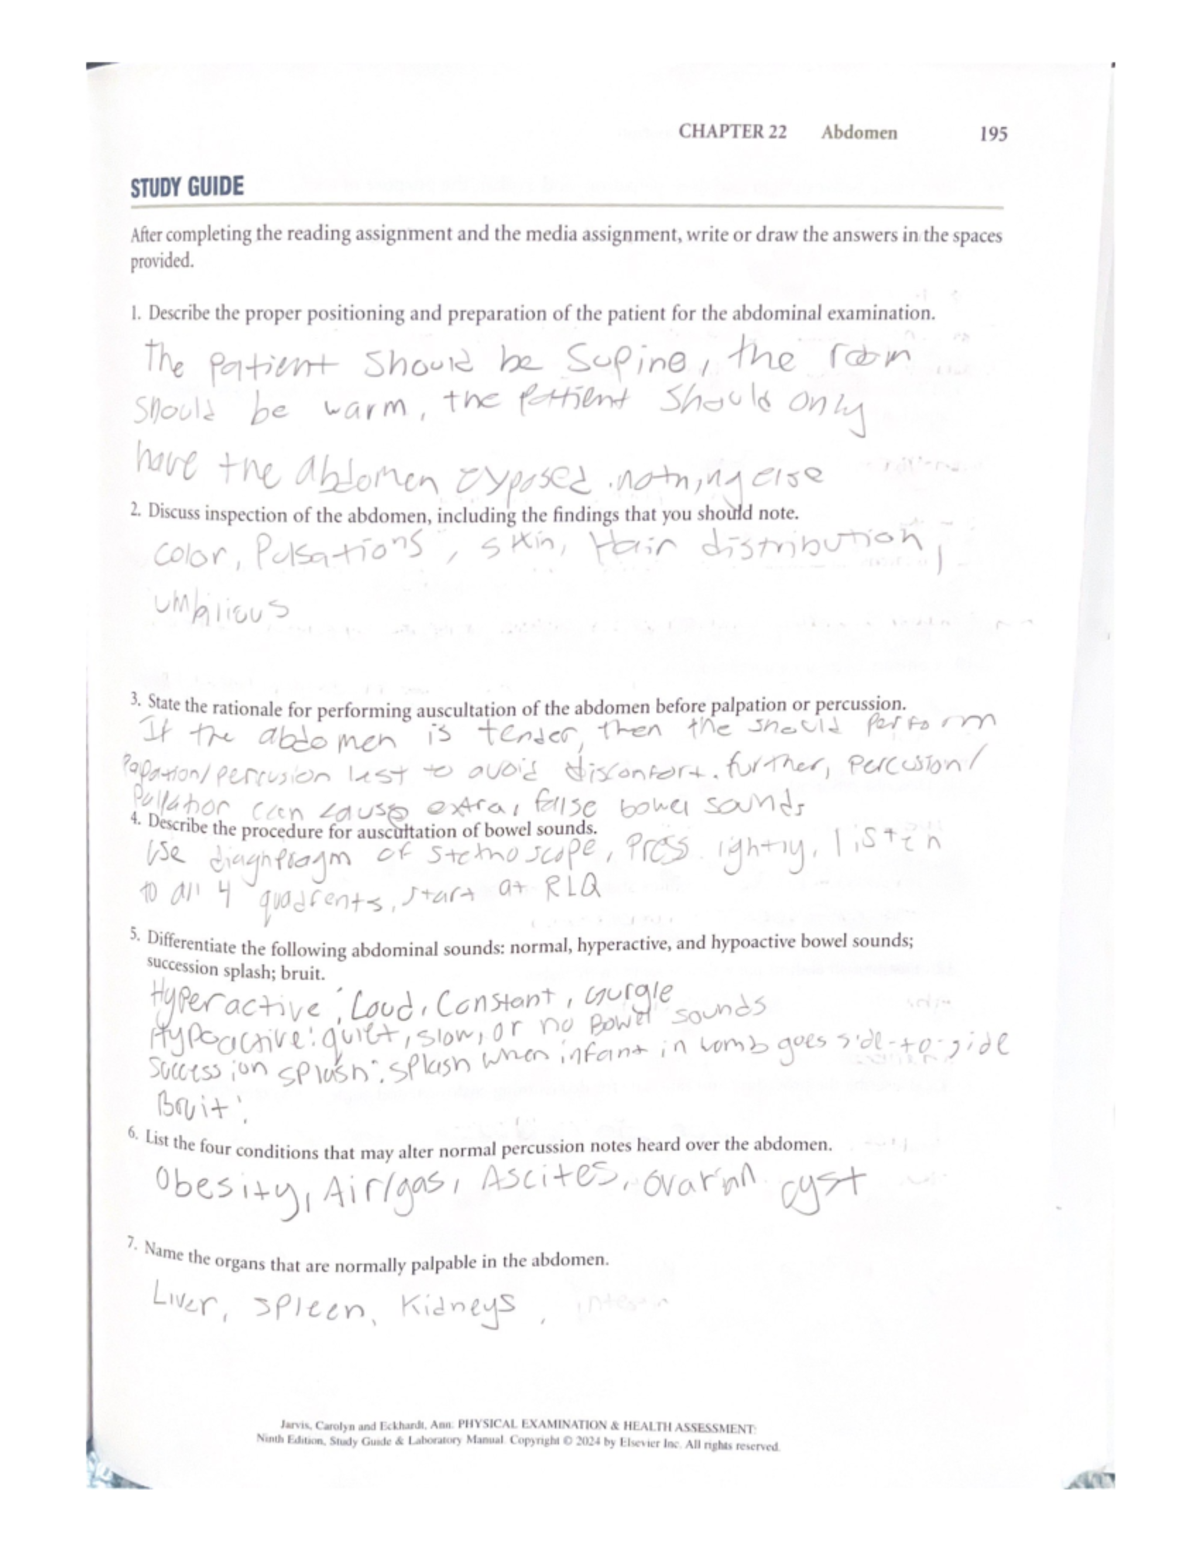 CHAPTER 22 Abdomen 195
STUDY GUIDE
After completing the reading assignment and the media assignment, write or draw the answers in the spaces
provided.
1. Describe the proper positioning and preparation of the patient for the abdominal examination.
The patient should be supine, the room
should be warm, the patient should only
have the abdomen exposed nothing else
2. Discuss inspection of the abdomen, including the findings that you should note.
color, Pulsations, skin, Hair distribution,
umblicus
3. State the rationale for performing auscultation of the abdomen before palpation or percussion.
If the abdomen is tender, then the should perform
Papation/percusion last to avoid disconfort. further, percusion/
Pallation can cause extra, false bowel sounds
4. Describe the procedure for auscultation of bowel sounds.
Use diaghpragm of stethoscope, Press lightly, listen
to all 4 quadrents, start at RLQ
5. Differentiate the following abdominal sounds: normal, hyperactive, and hypoactive bowel sounds;
succession splash; bruit.
Hyperactive: Loud, Constant, Gurgle
Hypoactive: quiet, slow, or no Bowel sounds
Succession splush: splash when infant in womb goes side-to-side
Bruit:
6. List the four conditions that may alter normal percussion notes heard over the abdomen.
Obesity, Air/gas, Ascites, ovarian cyst
7. Name the organs that are normally palpable in the abdomen.
Liver, spleen, Kidneys,
Jarvis, Carolyn and Eckhardt, Ann: PHYSICAL EXAMINATION & HEALTH ASSESSMENT:
Ninth Edition, Study Guide & Laboratory Manual. Copyright © 2024 by Elsevier Inc. All rights reserved.